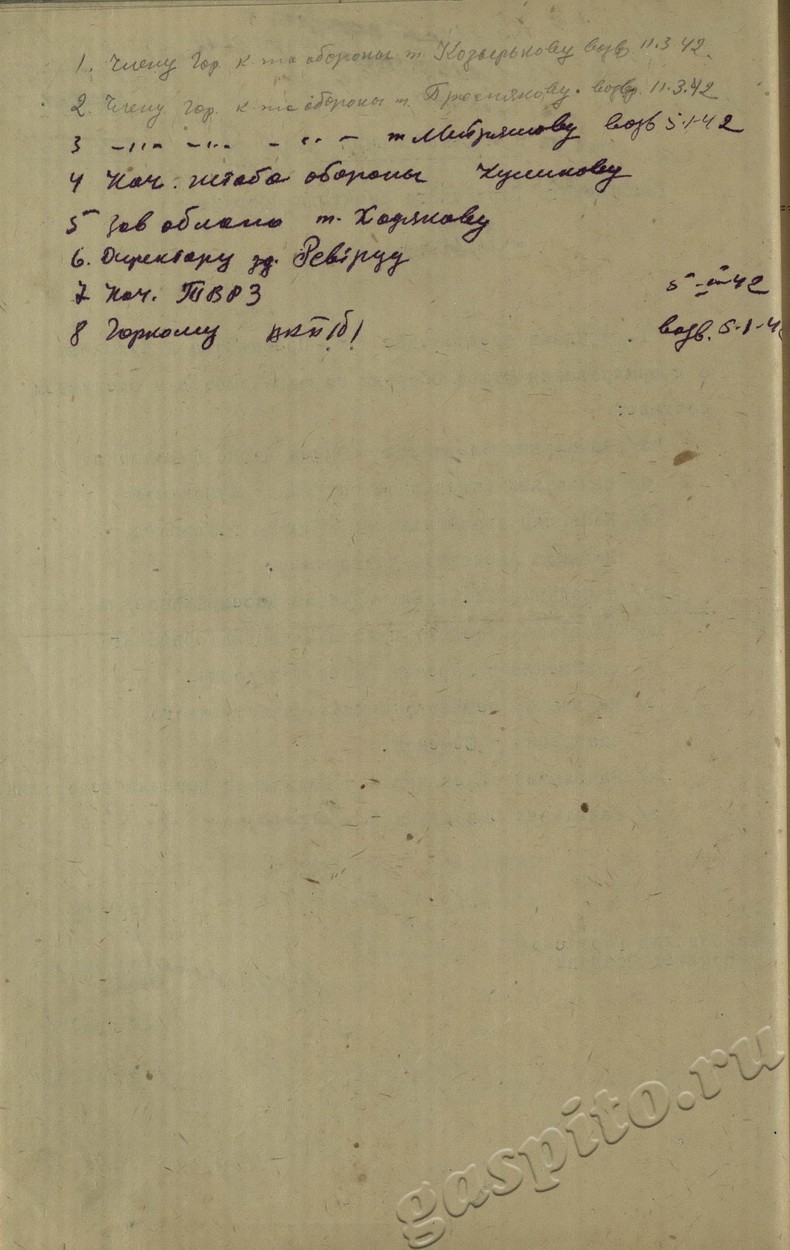 1. Члену Гор. к-та обороны т. Козырькову возвр. 11.3.42.
2. Члену Гор. к-та обороны т. Преснякову. возвр. 11.3.42
3 -"- -"- - "- т Митряшову возв 5-1-42
4 Нач. штаба обороны Куликову
5 Зав облано т. Ходякову
6. Директору зд. Ревтруд
7 Нач. ТВРЗ 5-42
8 Горкому ВКП/б/ возв. 5-1-4
gaspito.ru